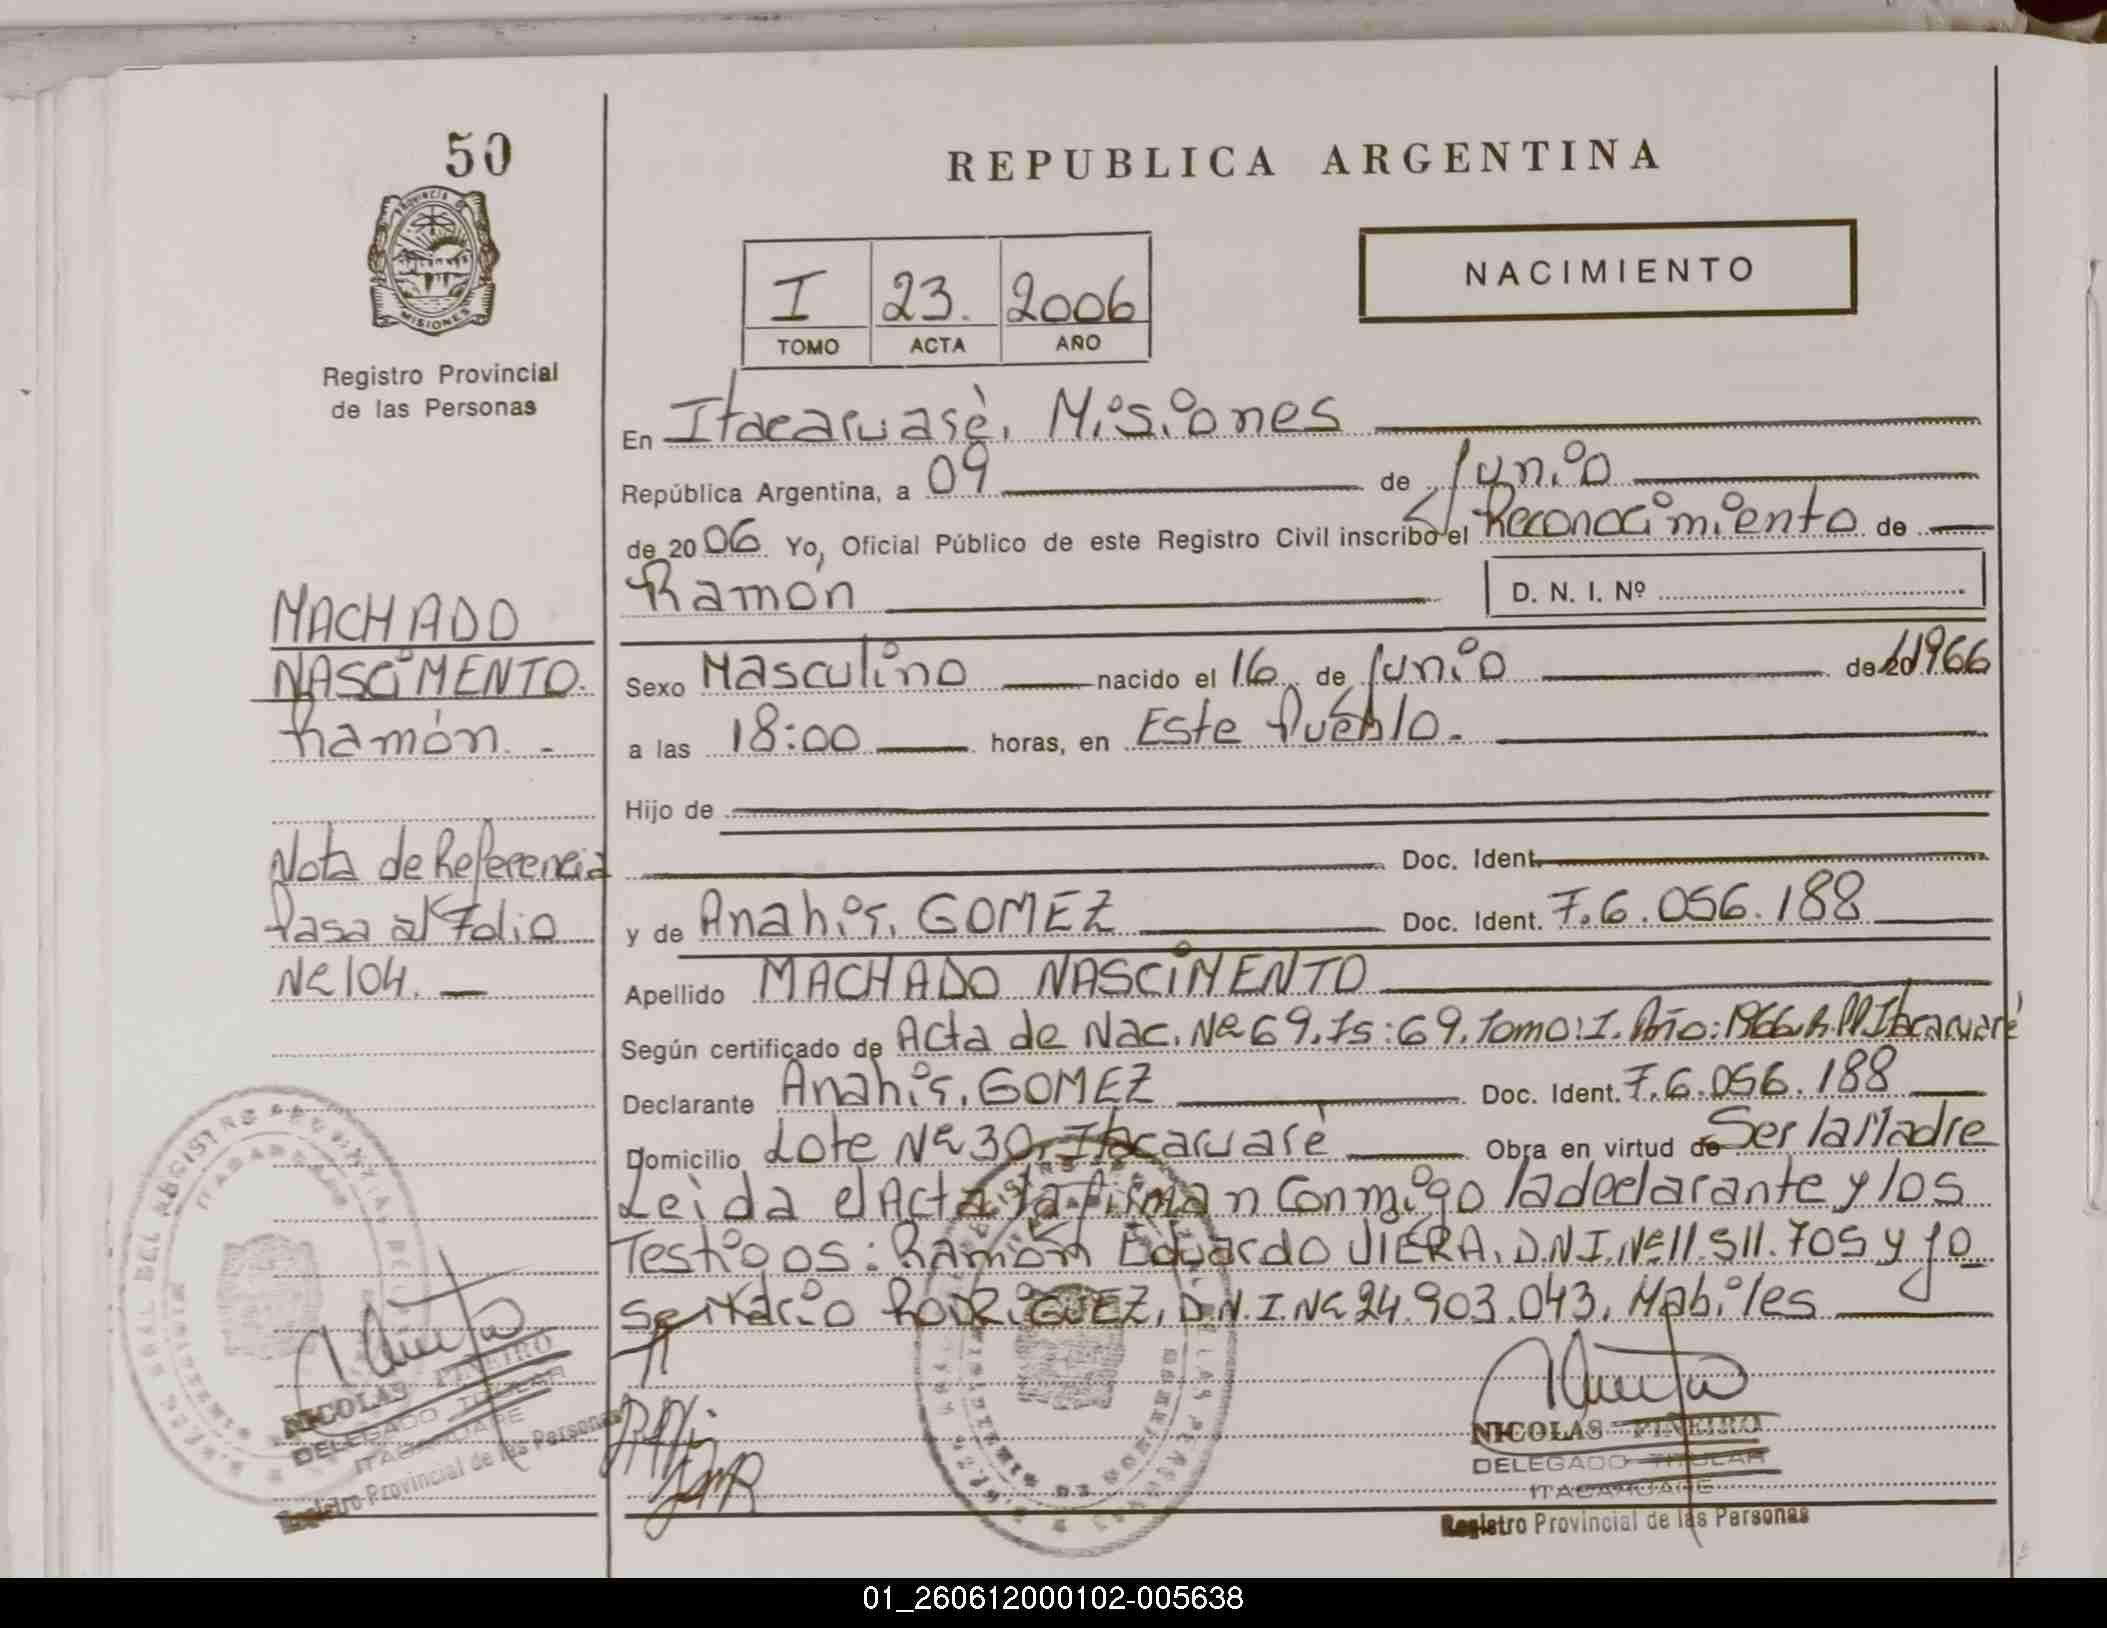 50
REPUBLICA ARGENTINA
PROVINCIA DE
MISIONES
Registro Provincial
de las Personas
NACIMIENTO
I 23. 2006
TOMO ACTA AÑO
En Itacaruarè, Misiones
República Argentina, a 09 de Junio
de 2006 Yo, Oficial Público de este Registro Civil inscribo el Reconocimiento de
Ramón D. N. I. Nº
MACHADO
NASCIMENTO.
Ramón. -
Sexo Masculino nacido el 16 de Junio de 20 1966
a las 18:00 horas, en Este Pueblo.
Hijo de
Doc. Ident.
Nota de Referencia
Pasa al Folio
Nº 104.
y de Anahis, GOMEZ Doc. Ident. F. 6.056.188
Apellido MACHADO NASCIMENTO
Según certificado de Acta de Nac. Nº 69. Fs: 69. Tomo: I. Año: 1966. R.PP. Itacaruaré
Declarante Anahis, GOMEZ Doc. Ident. F. 6.056.188
Domicilio Lote Nº 30, Itacaruarè Obra en virtud de Ser la Madre
Leida el Acta la firman Conmigo la declarante y los
Testigos: Ramón Eduardo VIERA, D.N.I. Nº 11.511.705 y Jo
se Mario RODRIGUEZ, D.N.I. Nº 24.903.043, Habiles
NICOLAS PIÑEIRO
DELEGADO TITULAR
ITACARUARE
Registro Provincial de las Personas
NICOLAS PIÑEIRO
DELEGADO TITULAR
ITACARUARE
Registro Provincial de las Personas
01_260612000102-005638